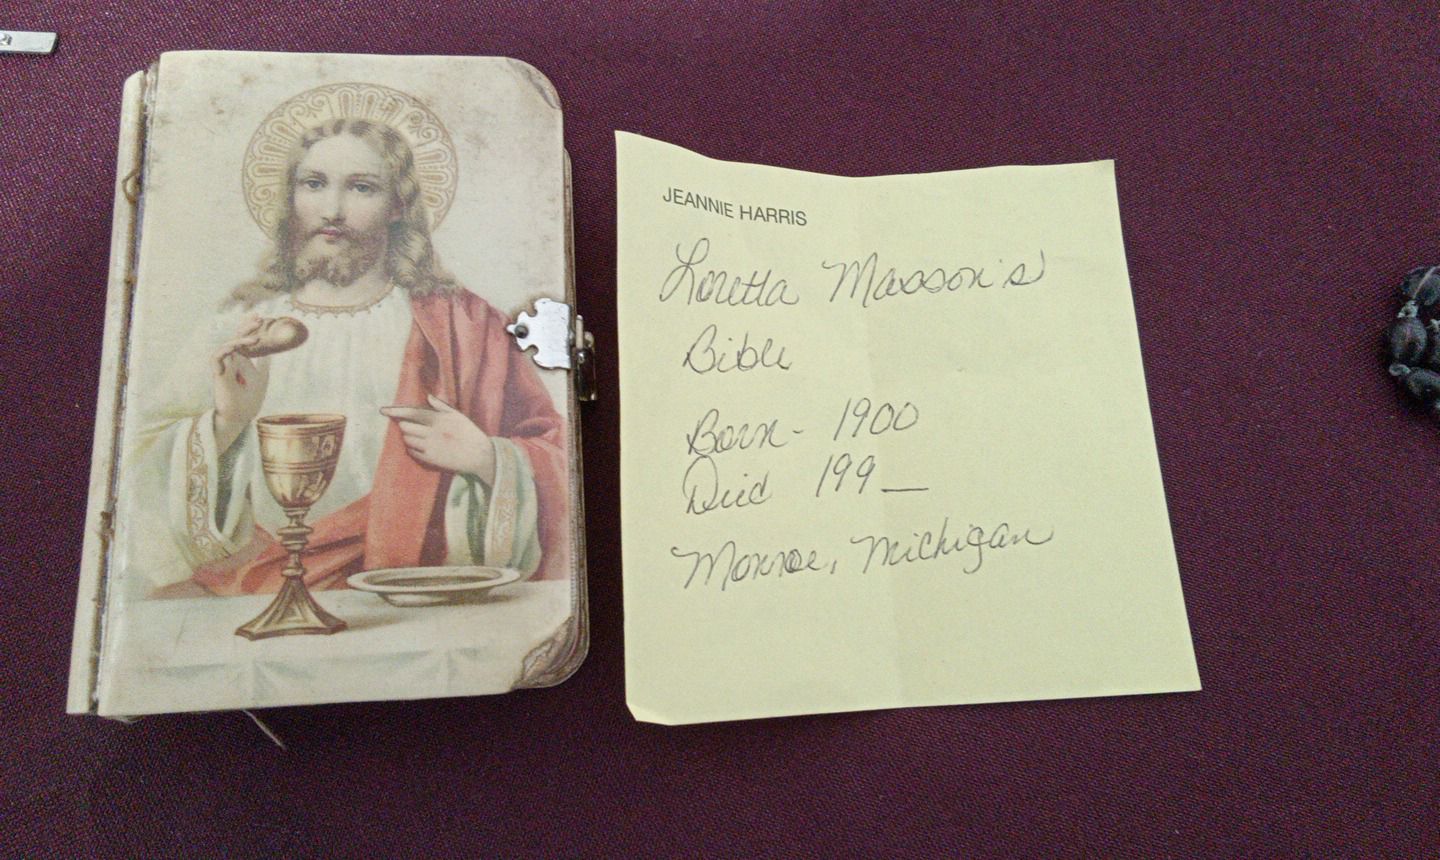 JEANNIE HARRIS
Loretta Masson's
Bible
Born - 1900
Died 199_
Monroe, Michigan